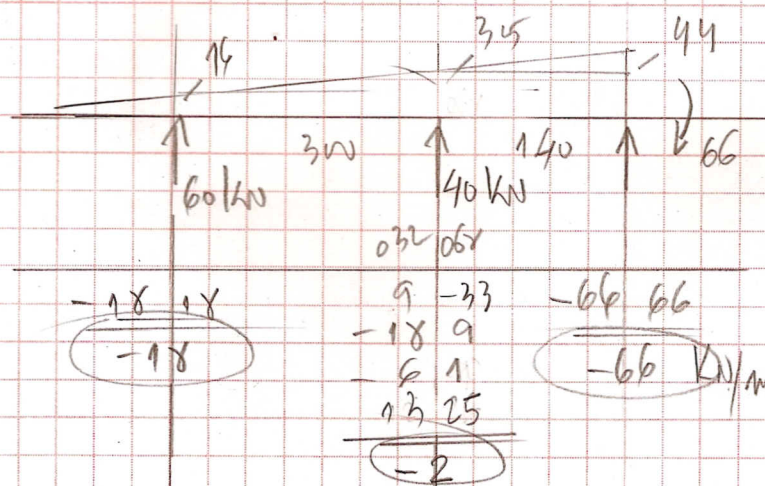 14 345 44
300 140 66
60 KN 40 KN
032 068
-18 18 9 -33 -66 66
-18 -18 9 -66 KN/m
-6 1
13 25
-2